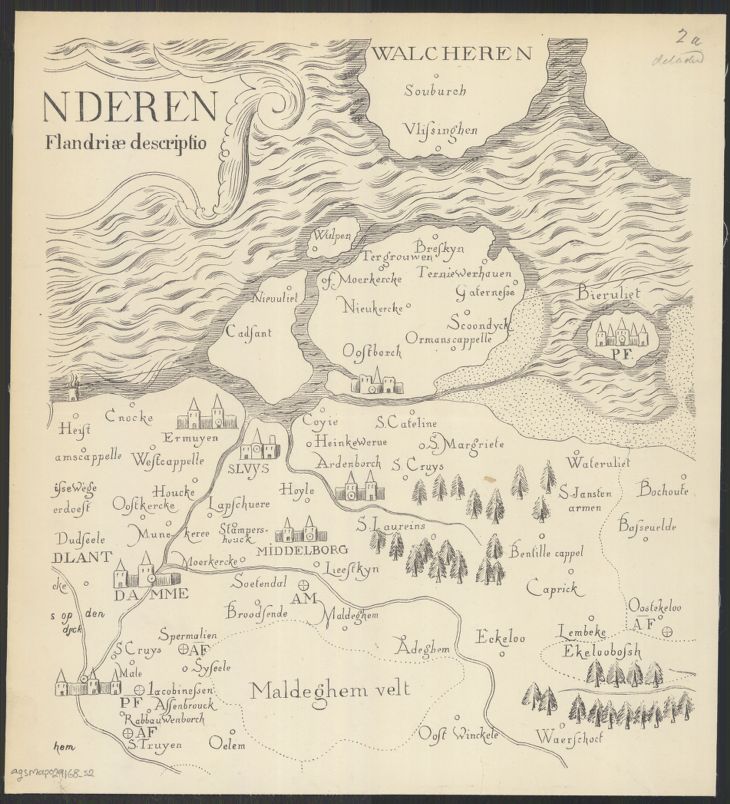 2a
WALCHEREN
Souburch
Vlissinghen
NDEREN
Flandriæ descriptio
Wulpen
Breskyn
Tergrouwen
of Moerkercke
Terniewerhauen
Nieuuliet
Gaternesse
Nieukercke
Bieruliet
Cadsant
Scoondyck
Ormanscappelle
Oostborch
PF
Cnocke
Coyie
S.Cateline
Heyst
Ermuyen
Heinkewerue
S Margriete
amscappelle
Westcappelle
SLVYS
Ardenborch
S Cruys
Wateruliet
ysewege
Houcke
Hoyle
S.Jansten
Bochoute
erdoest
Oostkercke
Lapschuere
armen
Mune
keree
Stampers-
houck
S.Laureins
Basseuelde
Dudseele
MIDDELBORG
DLANT
Moerkercke
Bentille cappel
Lieestkyn
cke
DAMME
Soetendal
AM
Caprick
s op den
dyck
Broodsende
Maldeghem
Oostekeloo
AF
Spermalien
AF
Lembeke
S Cruys
Adeghem
Eckeloo
Ekeloobosh
Male
Sysseele
Iacobinessen
PF
Assenbrouck
Maldeghem velt
Rabbauwenborch
AF
hem
S.Truyen
Oelem
Oost Winckele
Waerschoot
agsmap029168_s2